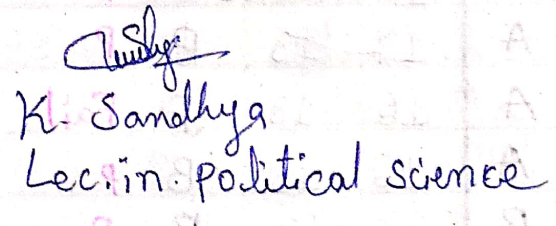 K. Sandhya
Lec. in. political science